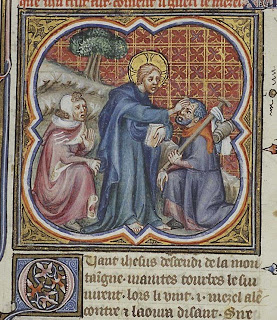 Quant ihesus descendi de la mon
taigne maintes tourbes le sui
uirent. lors li vint .i. mezel alē
contre ⁊ laoura disant. Sire